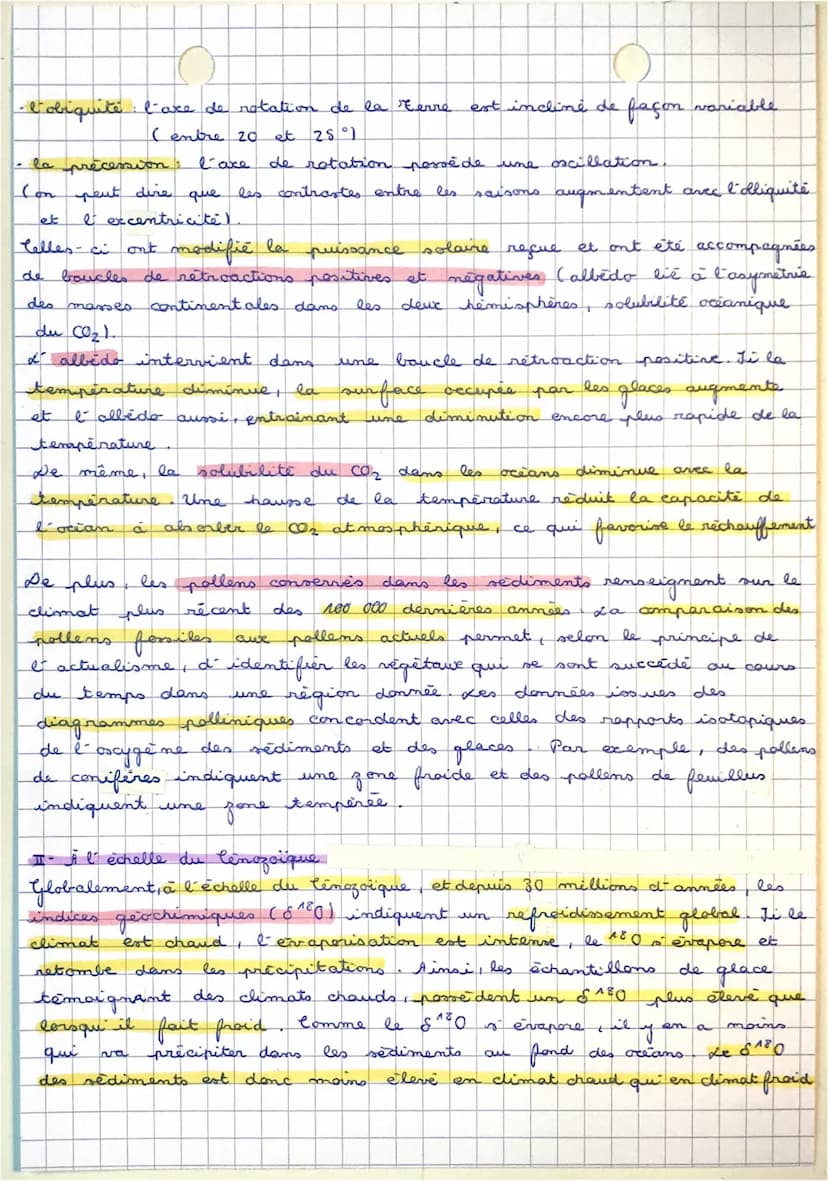 - l'obiquité : l'axe de rotation de la Terre est incliné de façon variable
( entre 20 et 25 °)
- la précession : l'axe de rotation possède une oscillation.
( on peut dire que les contrastes entre les saisons augmentent avec l'obliquité
et l'excentricité).
Celles-ci ont modifié la puissance solaire reçue et ont été accompagnées
de boucles de rétroactions positives et négatives (albédo lié à l'asymétrie
des masses continentales dans les deux hémisphères, solubilité océanique
du CO₂).
L'albédo intervient dans une boucle de rétroaction positive. Si la
température diminue, la surface occupée par les glaces augmente
et l'albédo aussi, entraînant une diminution encore plus rapide de la
température.
De même, la solubilité du CO₂ dans les océans diminue avec la
température. Une hausse de la température réduit la capacité de
l'océan à absorber le CO₂ atmosphérique, ce qui favorise le réchauffement
De plus, les pollens conservés dans les sédiments renseignent sur le
climat plus récent des 100 000 dernières années. La comparaison des
pollens fossiles aux pollens actuels permet, selon le principe de
l'actualisme, d'identifier les végétaux qui se sont succédé au cours
du temps dans une région donnée. Les données issues des
diagrammes polliniques concordent avec celles des rapports isotopiques
de l'oxygène des sédiments et des glaces. Par exemple, des pollens
de conifères indiquent une zone froide et des pollens de feuillus
indiquent une zone tempérée.
II- À l'échelle du Cénozoïque
Globalement, à l'échelle du Cénozoïque, et depuis 30 millions d'années, les
indices géochimiques (δ¹⁸O) indiquent un refroidissement global. Si le
climat est chaud, l'évaporisation est intense, le ¹⁸O s'évapore et
retombe dans les précipitations. Ainsi, les échantillons de glace
témoignant des climats chauds, possèdent un δ¹⁸O plus élevé que
lorsqu'il fait froid. Comme le δ¹⁸O s'évapore, il y en a moins
qui va précipiter dans les sédiments au fond des océans. Le δ¹⁸O
des sédiments est donc moins élevé en climat chaud qu'en climat froid